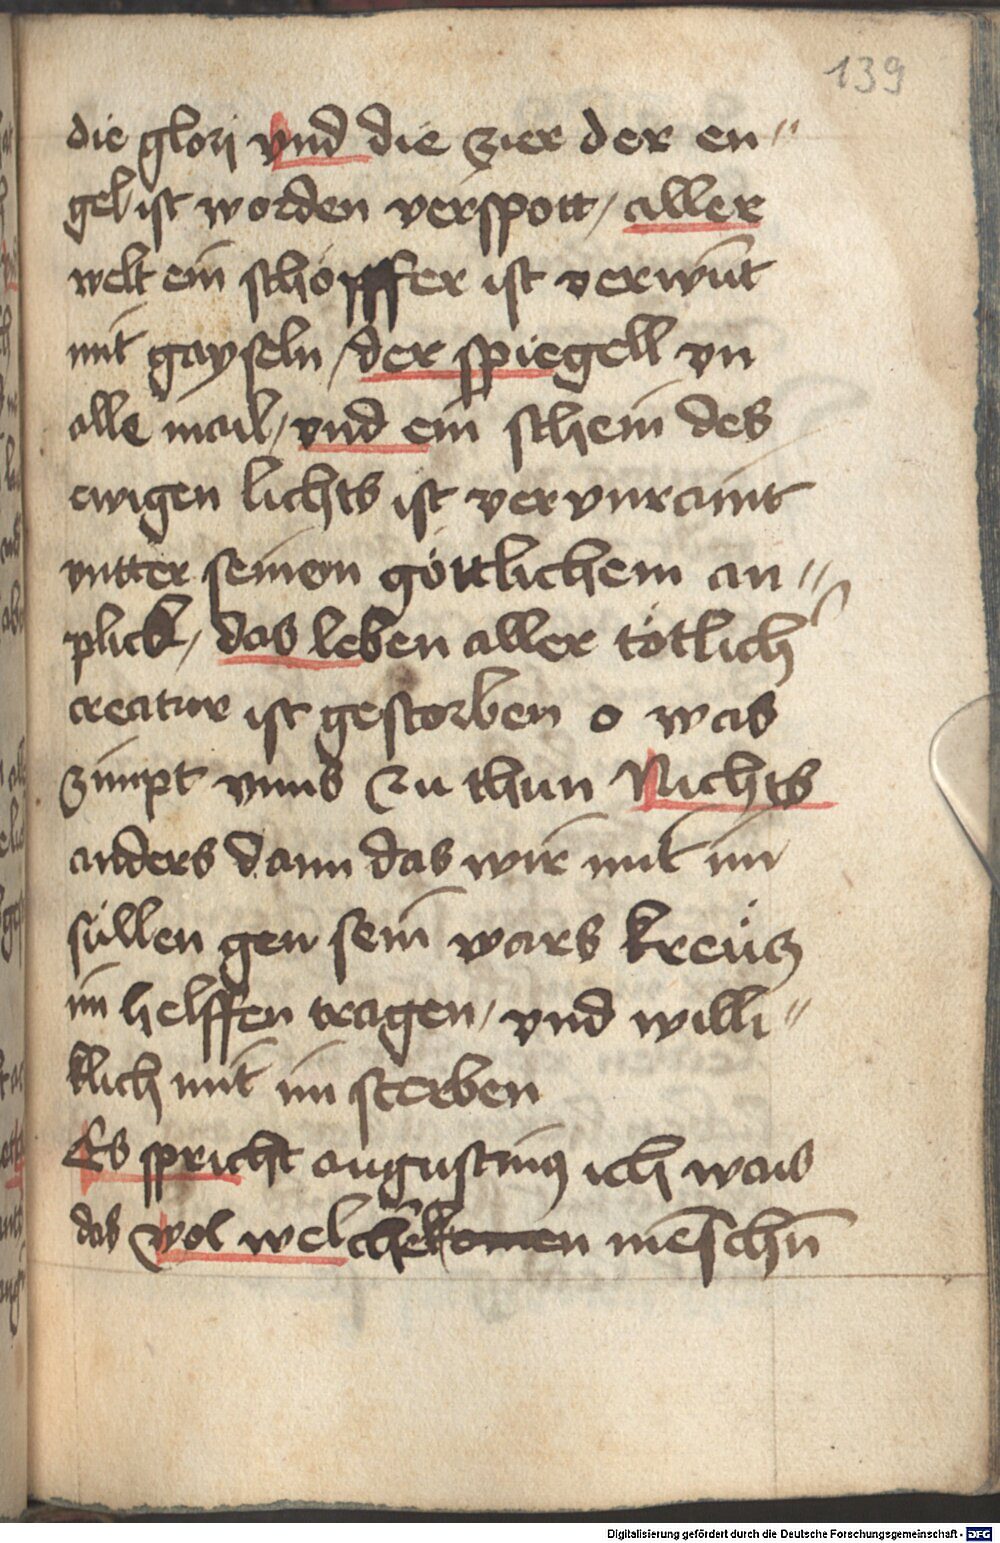 139
die glorj vnd die zier der en〃
gel ist worden verspott / aller
welt ein schöpffer ist verwūt
mit gayseln / der spiegell vn
alle mail / vnd ein schein des
ewigen lichts ist vervnraint
vntter seinem göttlichem an〃
plick / das leben aller tötlich
creatur ist gestorben o was
zimpt vnns zu thun Nichts
anders dann das wir mit im
süllen gen sein wars kreütz
im helffen tragen / vnd willi〃
klich mit im sterben
Es spricht augustinus ich wais
das wol welche menschn
Digitalisierung gefördert durch die Deutsche Forschungsgemeinschaft - DFG